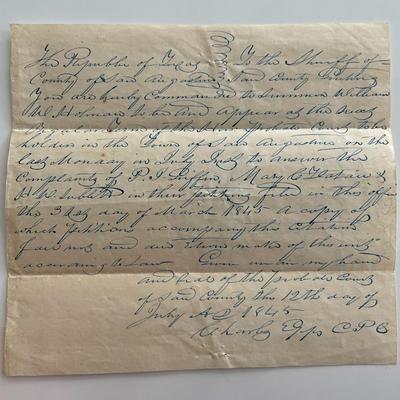 The Republic of Texas To the Sheriff of
County of San Augustine Said County Greeting
You are hereby Commanded to Summon William
W. Holman to be and Appear at the Next
Regular Term of the Hon. Probate Court to be
holden in the Town of San Augustine on the
last Monday in July Inst to answer the
Complaint of P. J. Mary C. &
H. W. Sublett in their petition filed in this office
the 31st day of March 1845 A copy of
which Petition accompany this Citation
Fail not and due return make of this writ
according to Law Given under my hand
and seal of the probate Court
of said County this 12th day of
July A D 1845
C P C